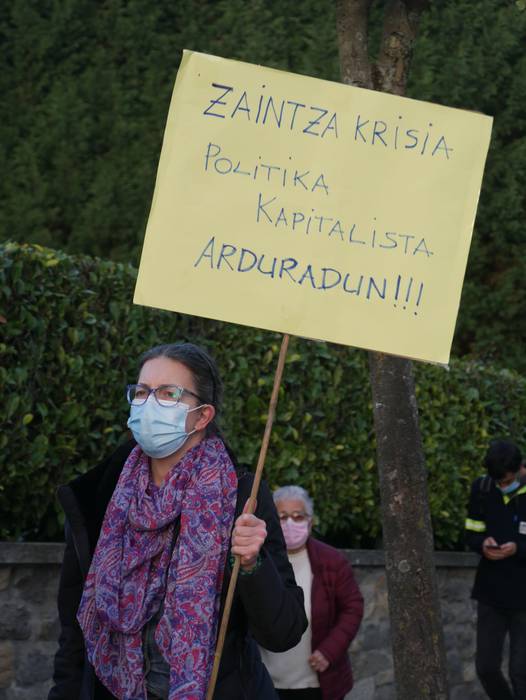 ZAINTZA KRISIA
POLITIKA
KAPITALISTA
ARDURADUN!!!